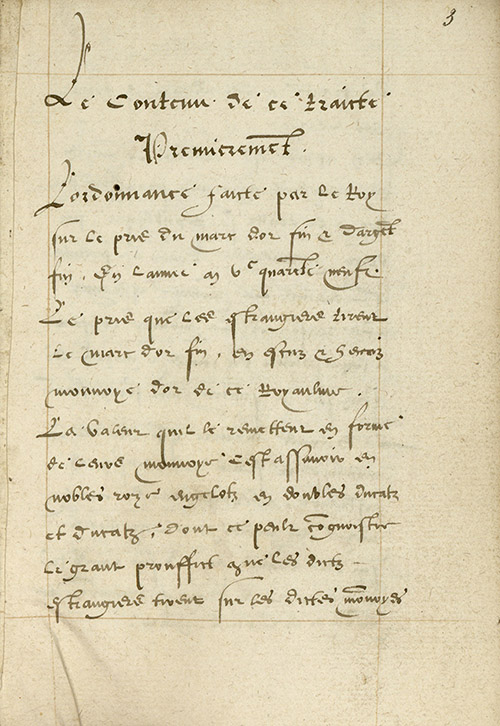 3
Le Contenu de ce traicte
Premierement.
Lordonnance faicte par le Roy
sur le pris du marc dor fin & dargẽt
fin, En lannee m vᶜ quarãte neuf.
Le pris que les estrangiers tirent
le marc dor fin, en escuz &
monnoye dor de ce Royaulme.
La valeur quilz le remettent en forme
de leurs monnoyes Cest assavoir en
nobles roze engelotz en doubles ducatz
et ducatz, dont ce peult cõgnoistre
le grant prouffict que les dictz
estrangiers tirent sur les dictes mõnoyes